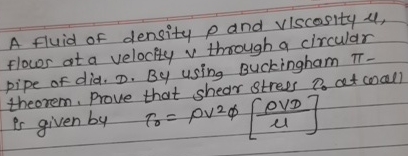 A fluid of density ρ and viscosity μ,
flows at a velocity v through a circular
pipe of dia. D. By using Buckingham π-
theorem, Prove that shear stress τ₀ at wall
is given by τ₀ = ρv2φ [ρVD/μ]